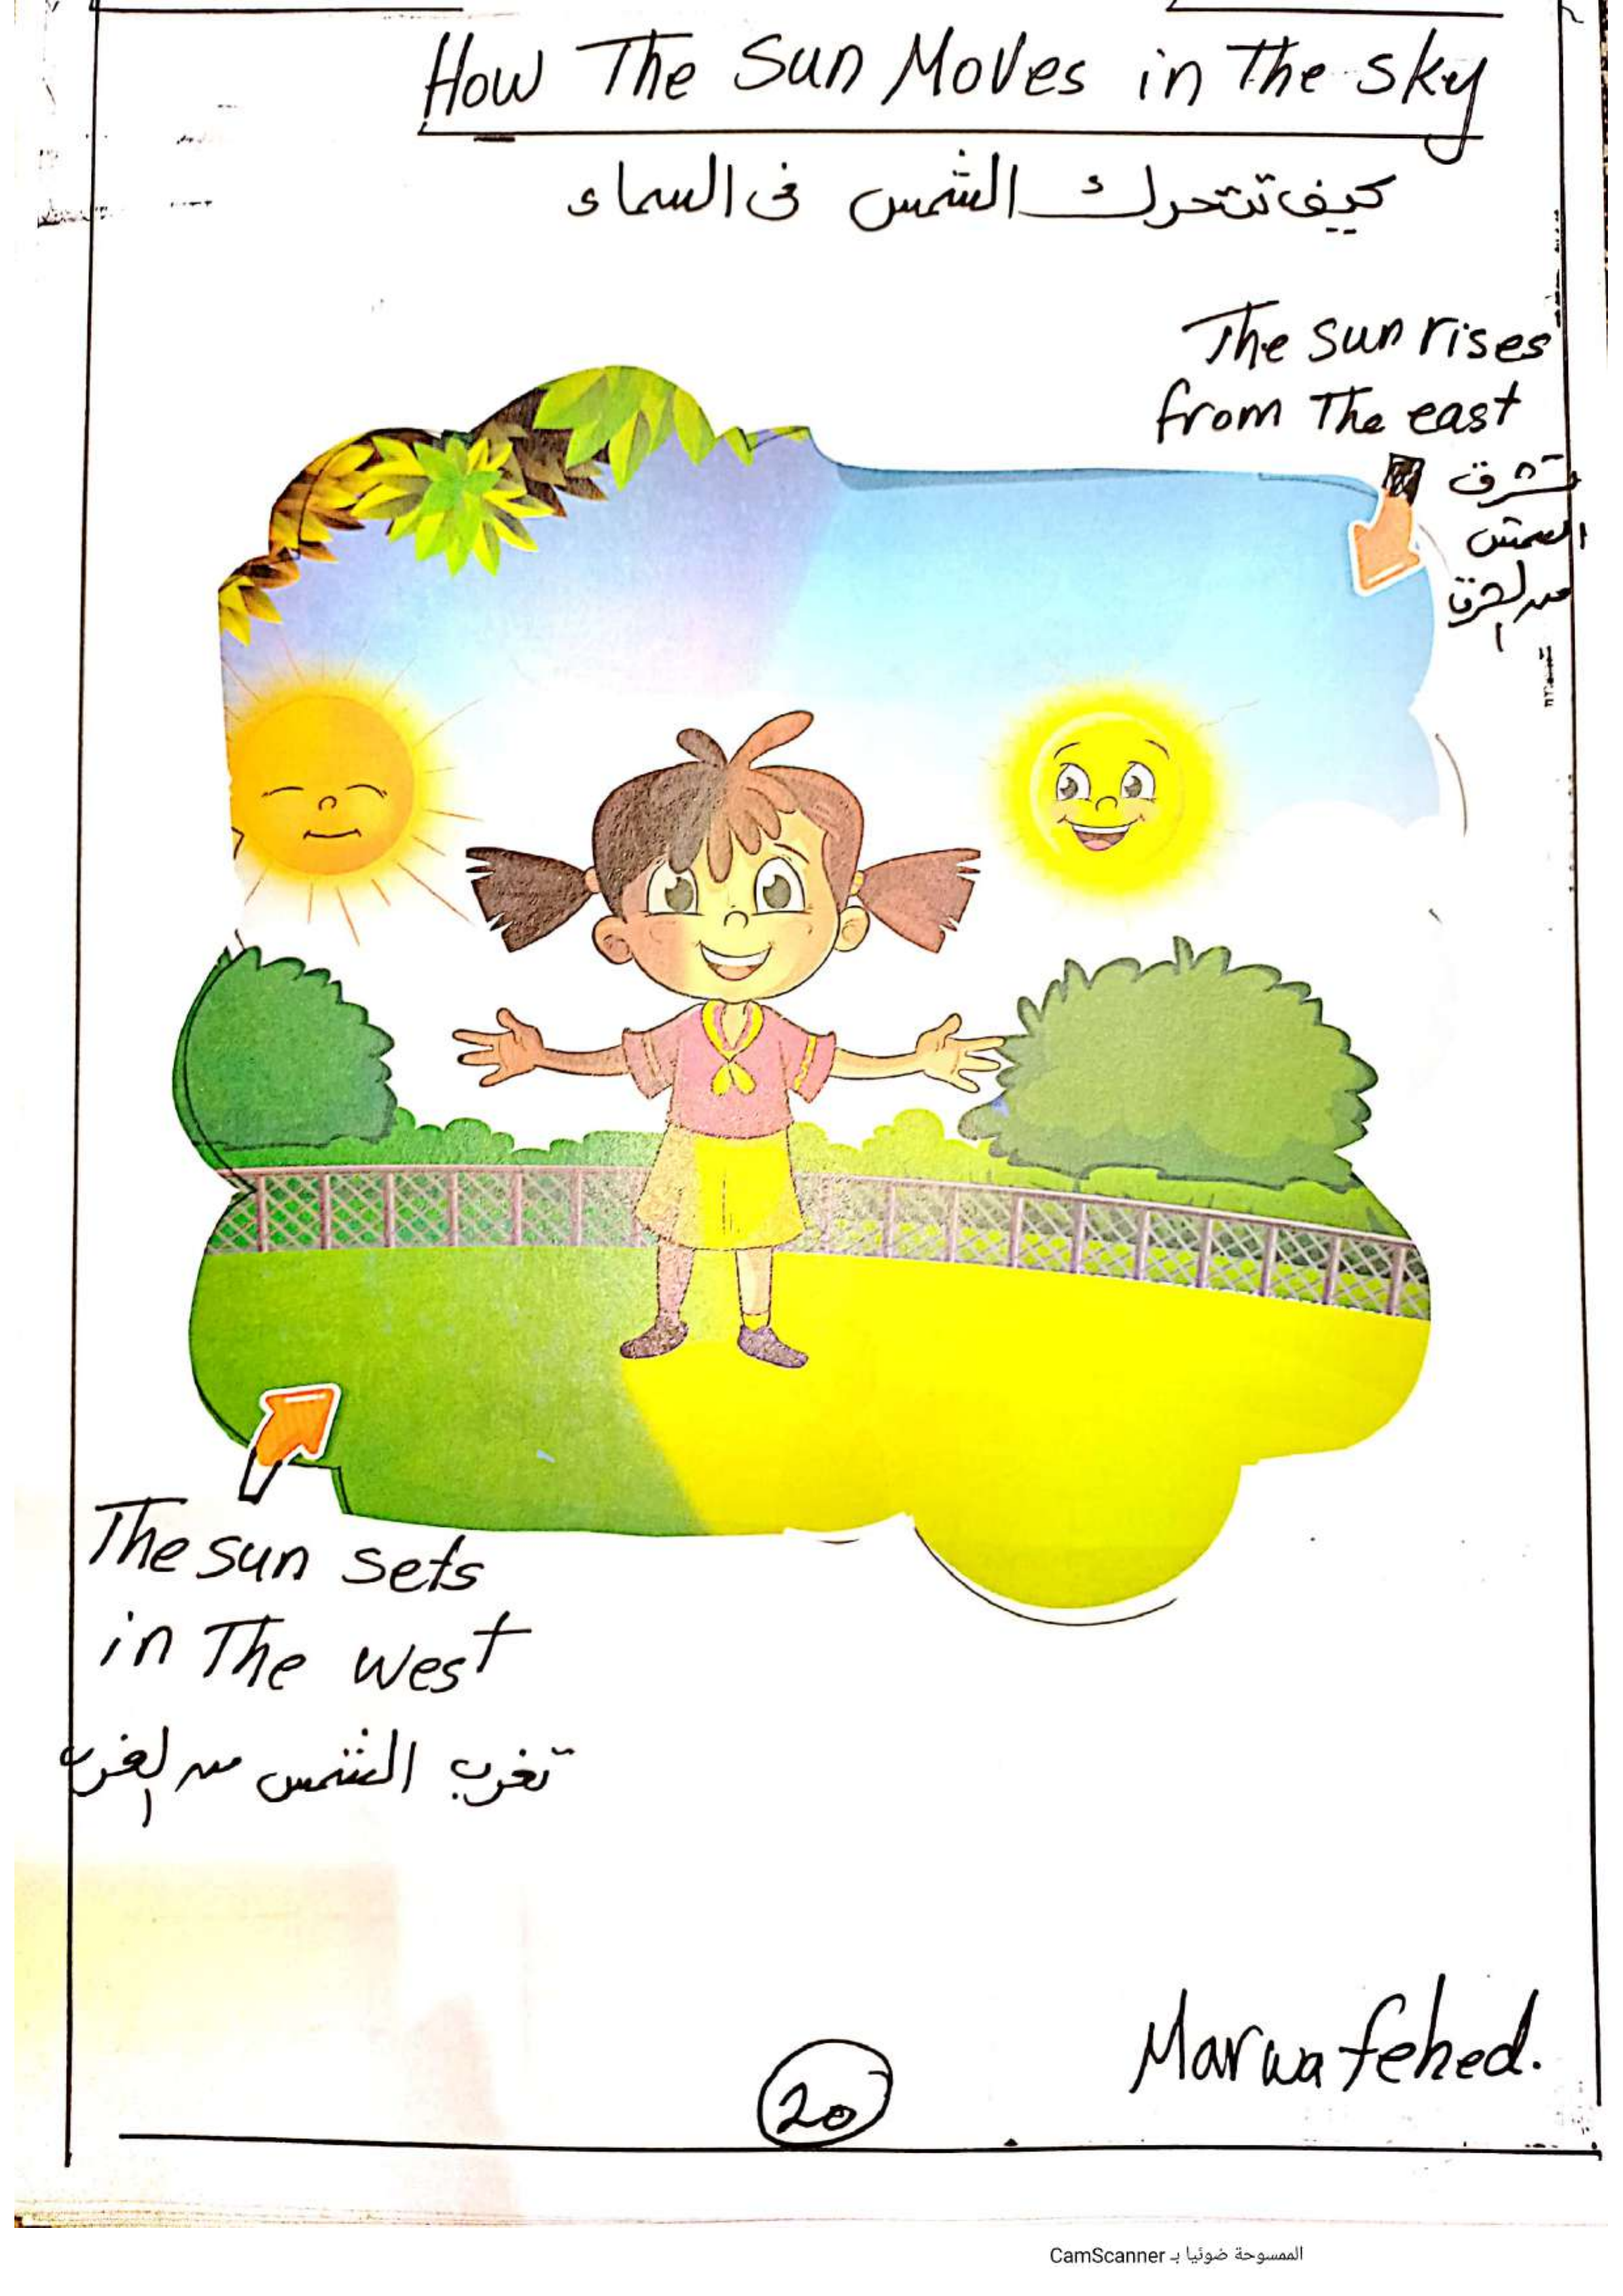 How The Sun Moves in The sky
كيف تتحرك الشمس فى السماء
The sun rises
from The east
تشرق
الشمس
من الشرق
The sun sets
in The west
تغرب الشمس من الغرب
Marwa fehed.
20
الممسوحة ضوئيا بـ CamScanner